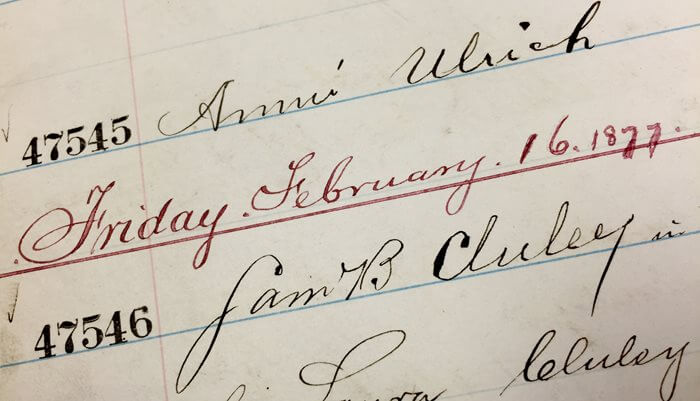 47545 Annie Ulrich
Friday. February. 16. 1877.
47546 Sam B Cluley in
Laura Cluley